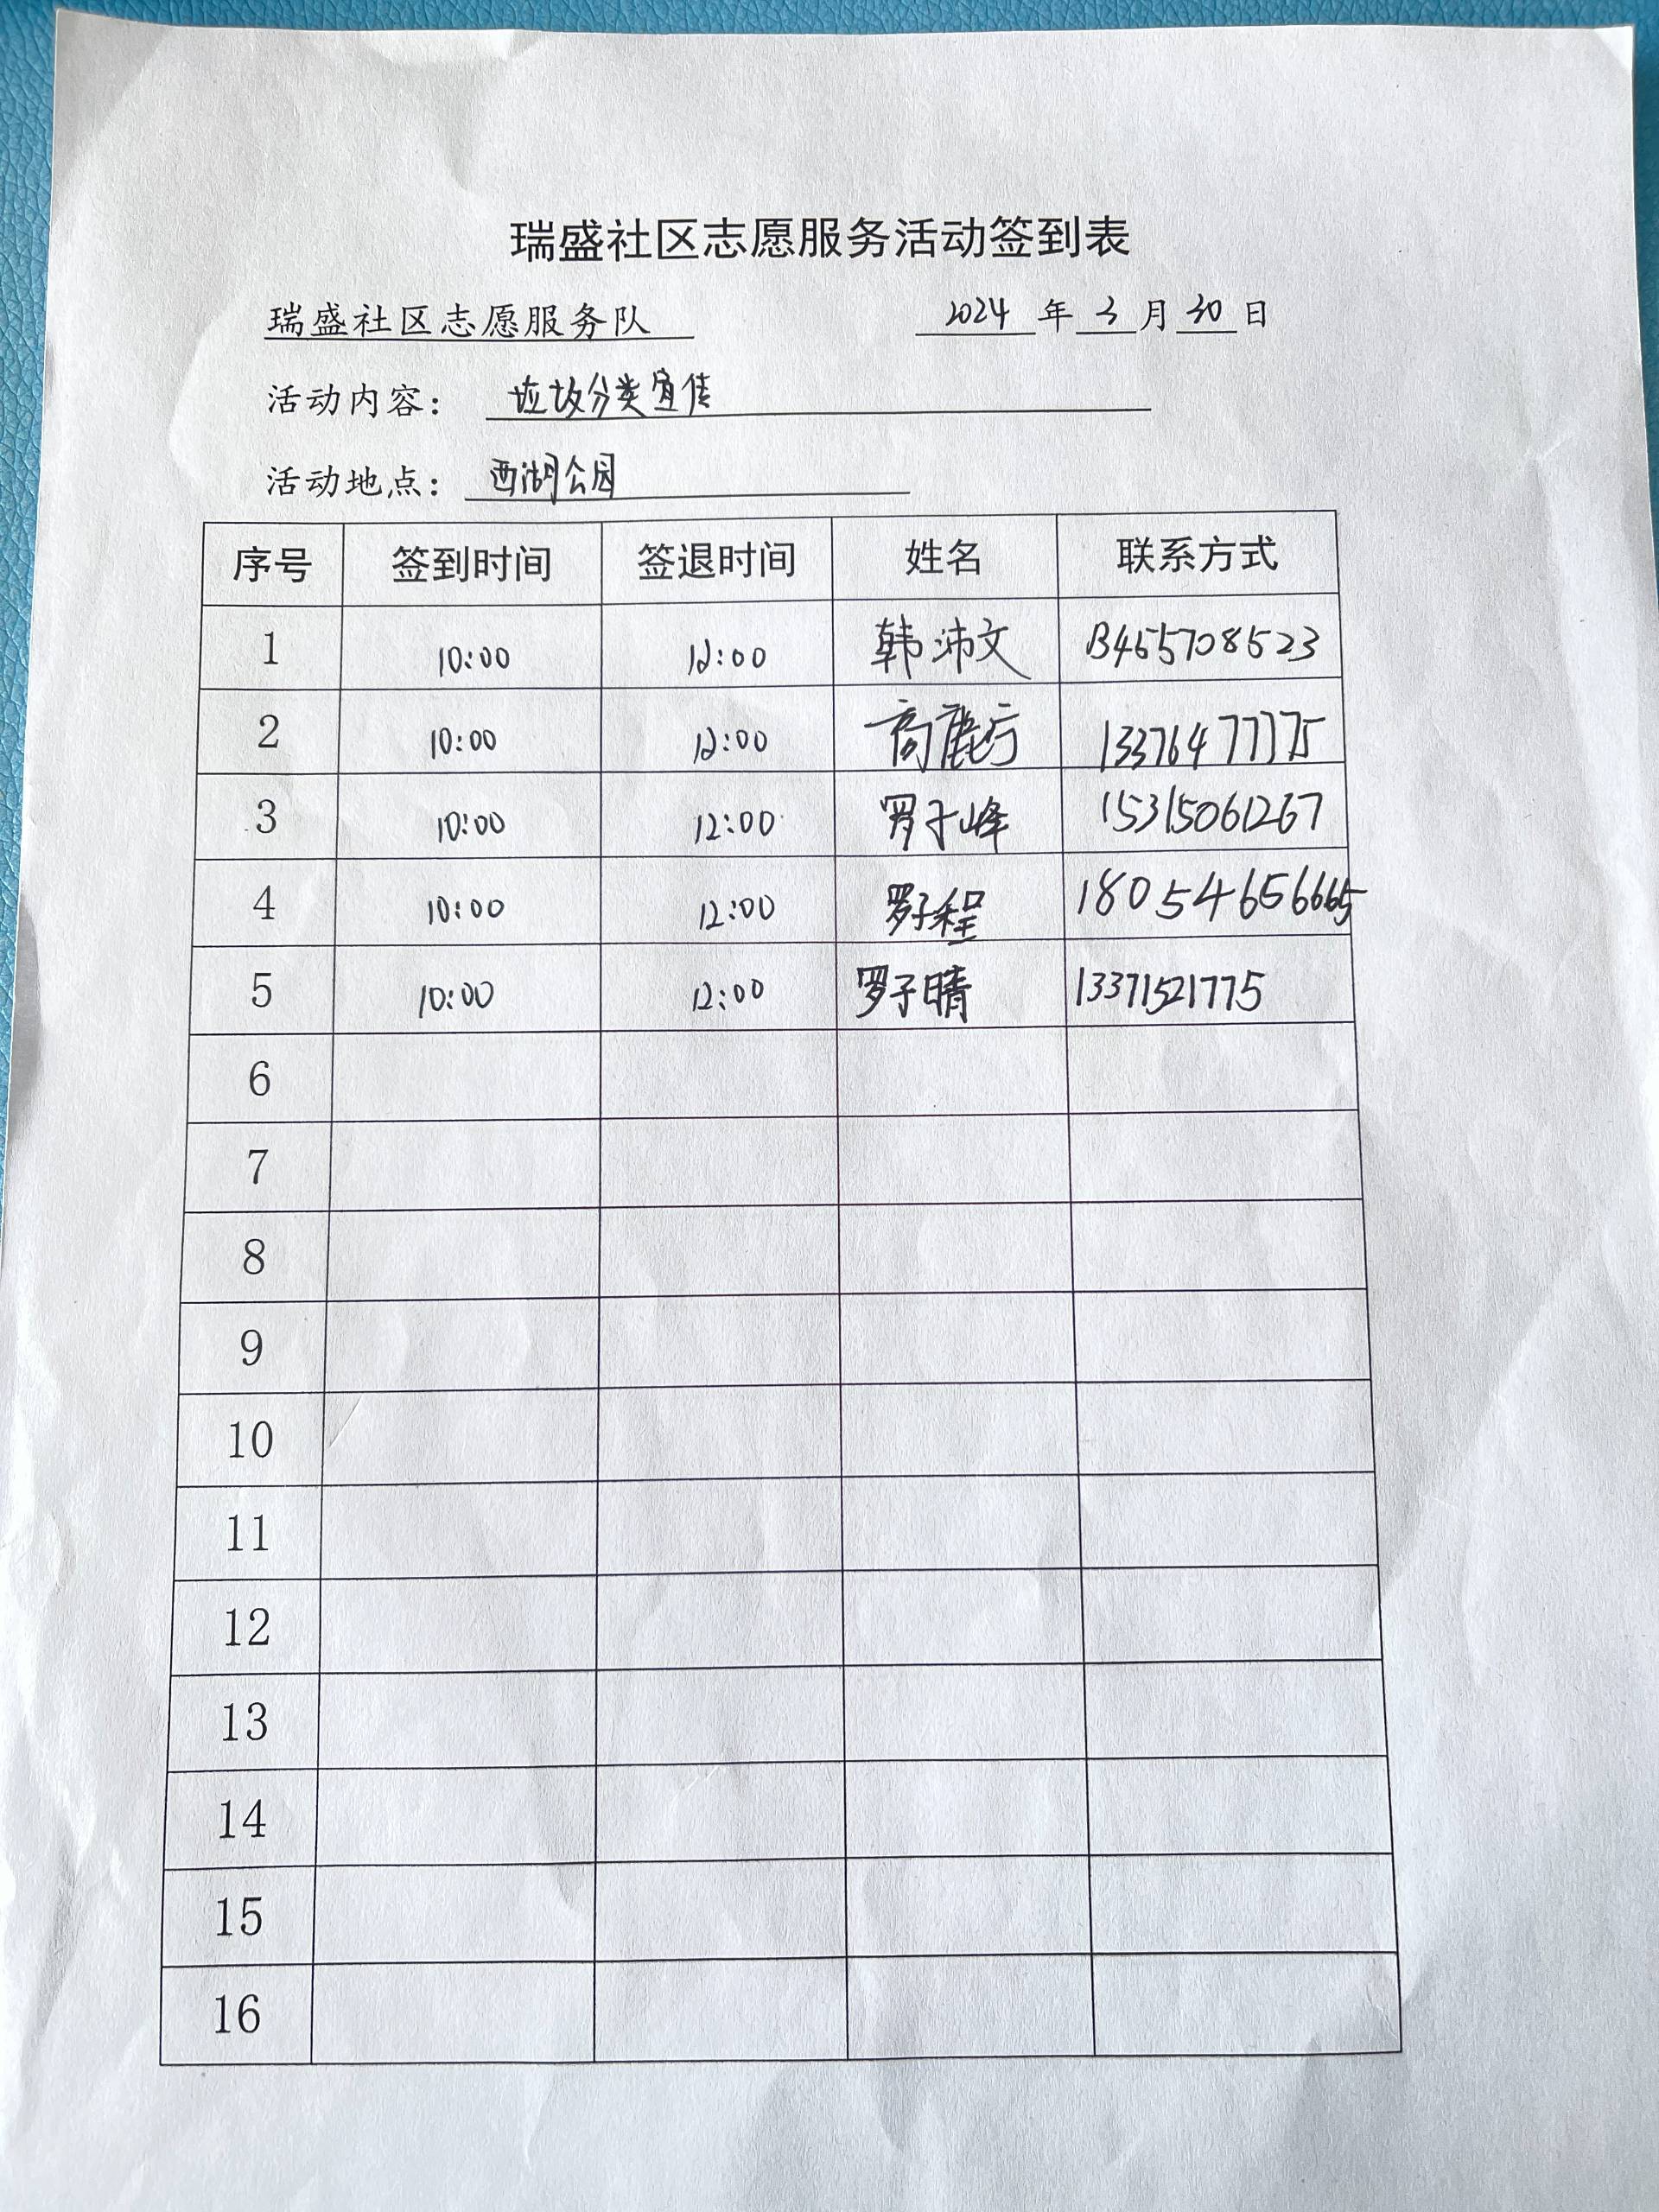 瑞盛社区志愿服务活动签到表
瑞盛社区志愿服务队 2024 年 3 月 30 日
活动内容： 垃圾分类宣传
活动地点： 西湖公园
序号 签到时间 签退时间 姓名 联系方式
1 10:00 12:00 韩沛文 13455708523
2 10:00 12:00 13376477775
3 10:00 12:00 罗子峰 15315061267
4 10:00 12:00 罗子程 18054656665
5 10:00 12:00 罗子晴 13371521775
6
7
8
9
10
11
12
13
14
15
16